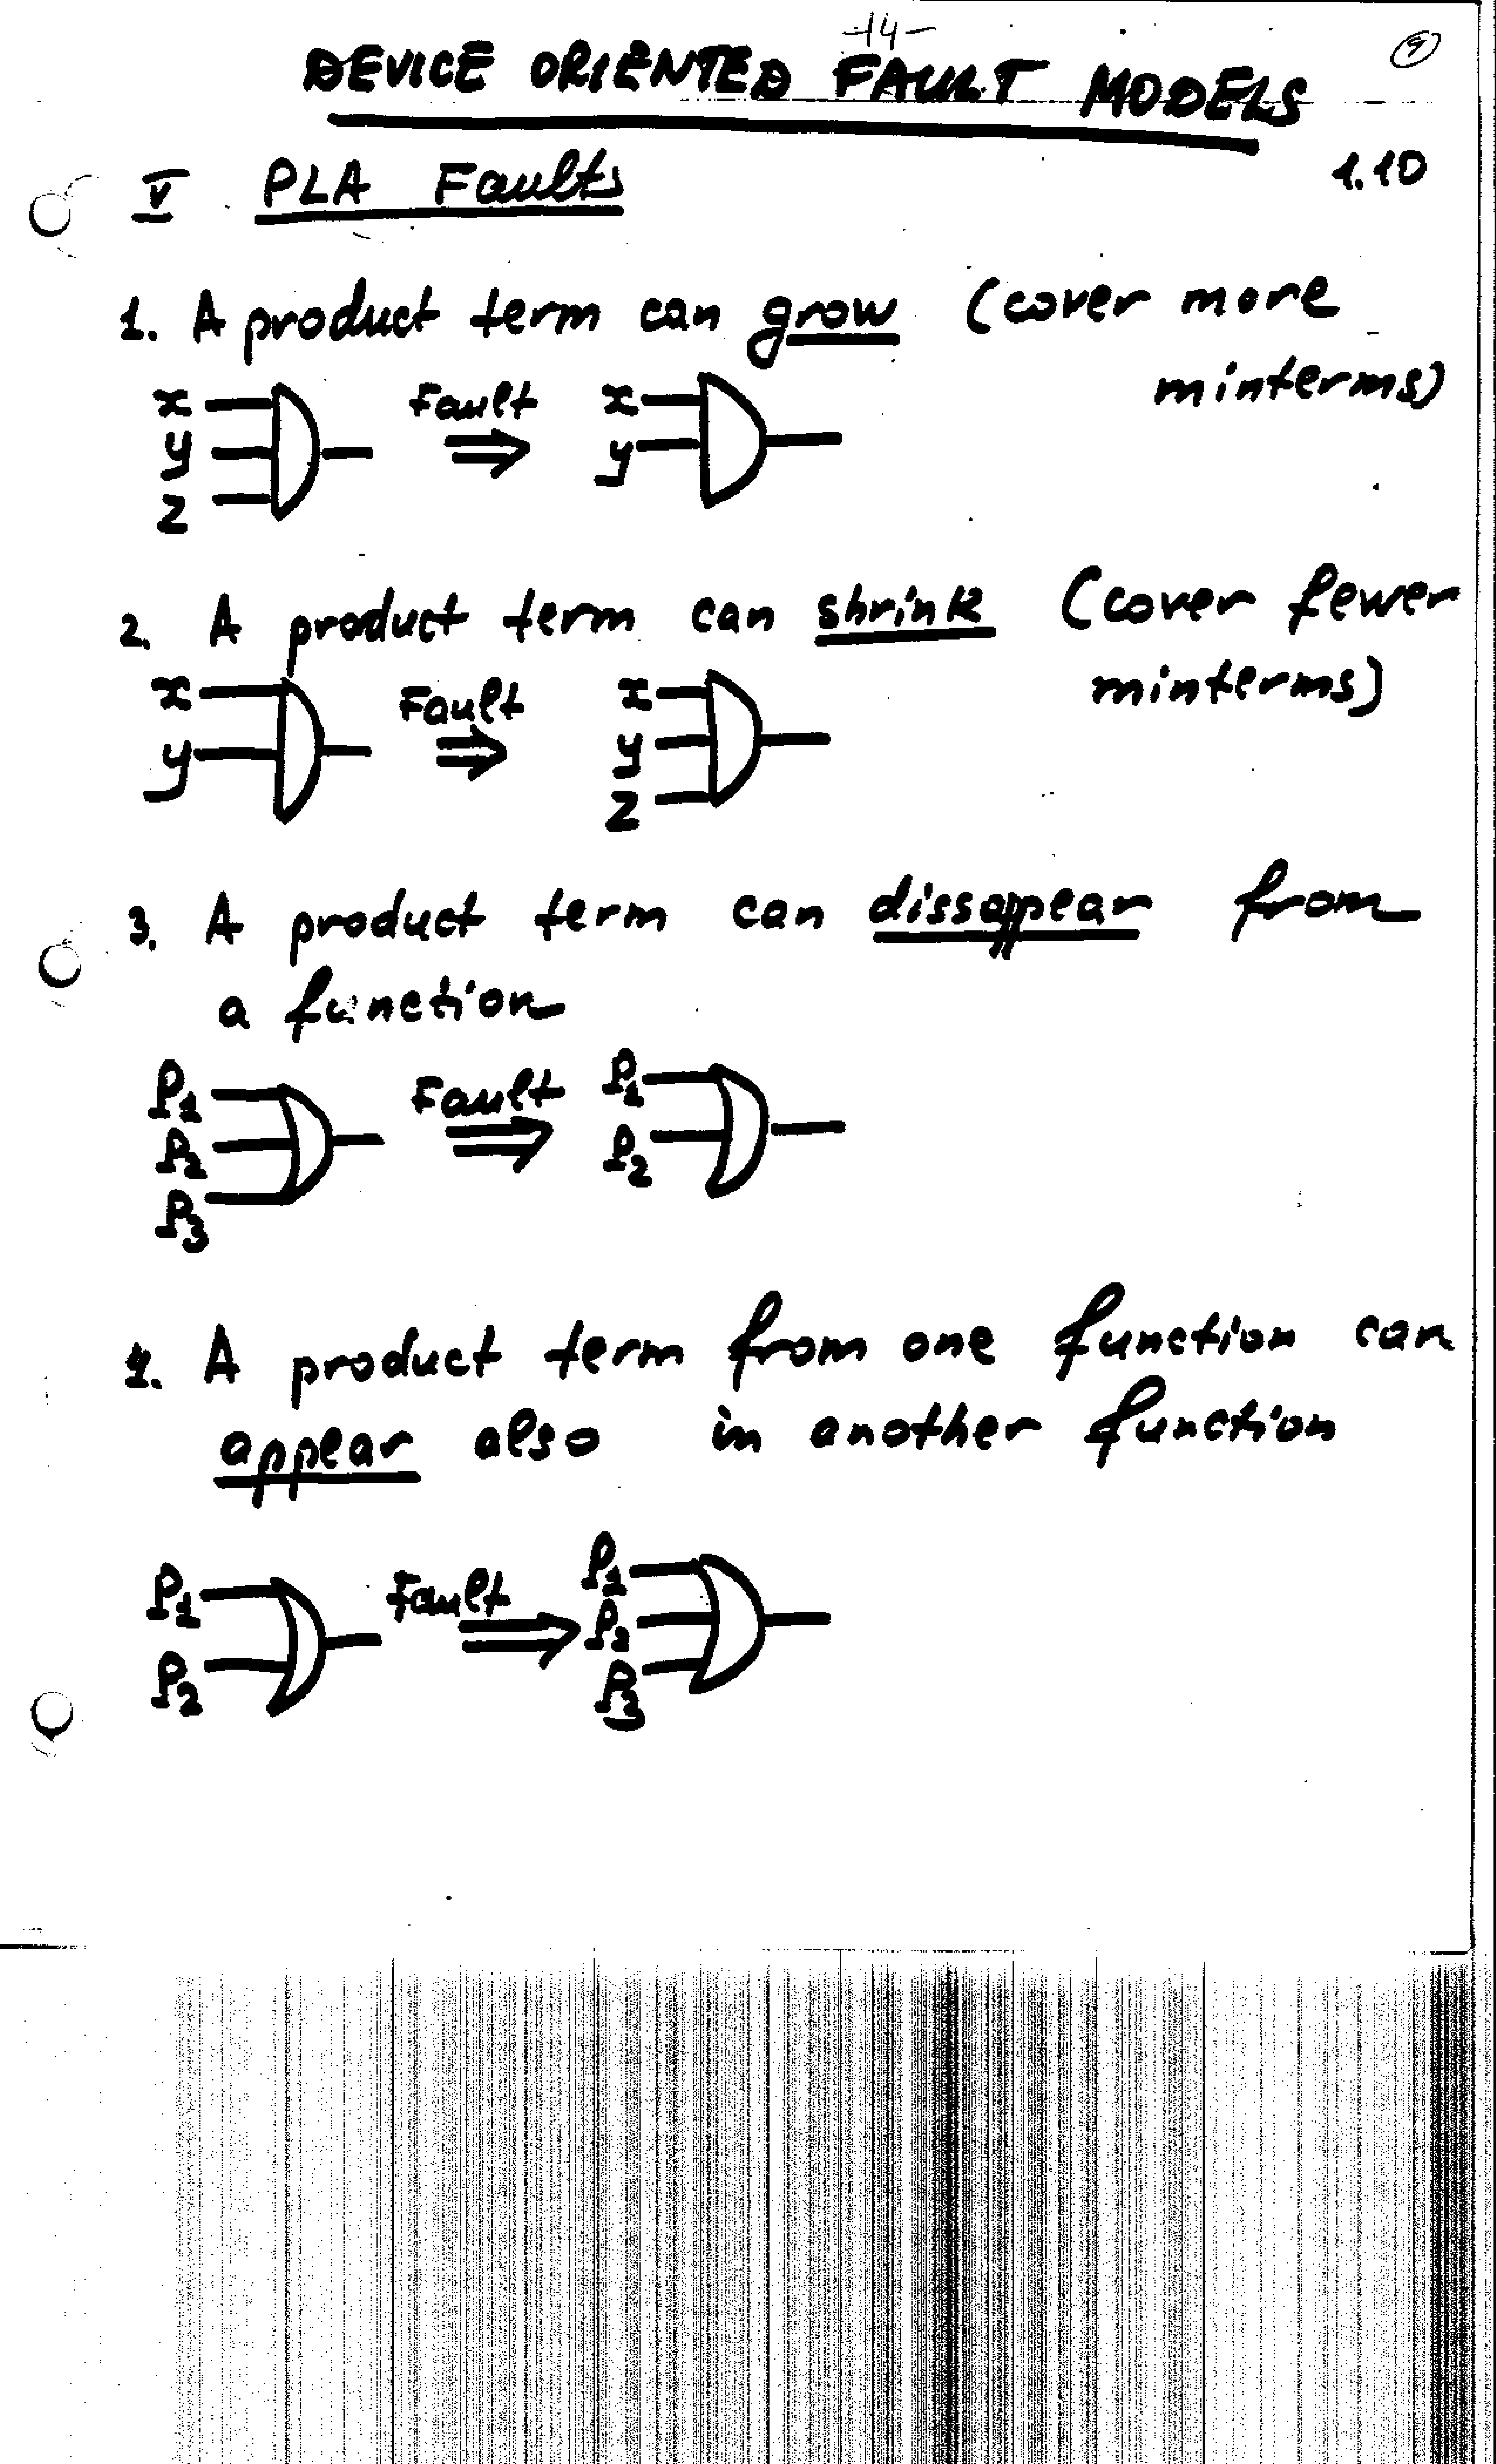 -14-
9
DEVICE ORIENTED FAULT MODELS
1.10
V PLA Faults
1. A product term can grow (cover more
minterms)
x
y
z
Fault
x
y
2. A product term can shrink (cover fewer
minterms)
x
y
Fault
x
y
z
3. A product term can dissappear from
a function
P1
P2
P3
Fault
P1
P2
4. A product term from one function can
appear also in another function
P1
P2
Fault
P1
P2
P3